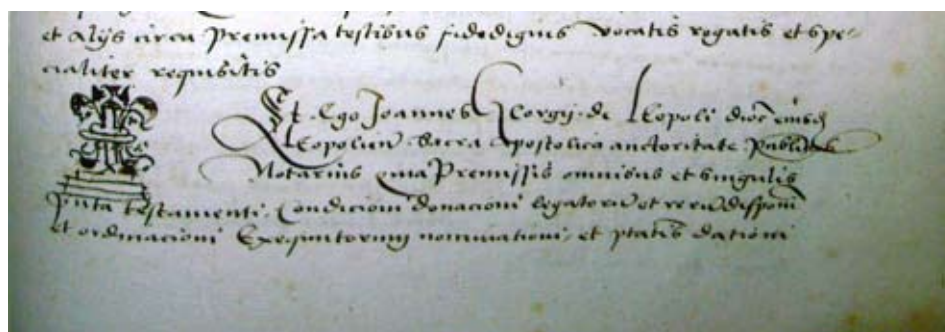 et alijs circa Premissa testibus fidedignis vocatis rogatis et spe-
cialiter requisitis
Et Ego Joannes Georgij de Leopoli dioc eiusd
Leopolien Sacra Apostolica auctoritate Publicus
Notarius quia Premissis omnibus et singulis
testamenti Condicioni donacioni legatorū et rerū disponi
et ordinacioni Exequutorum nominationi et ptatis dationi